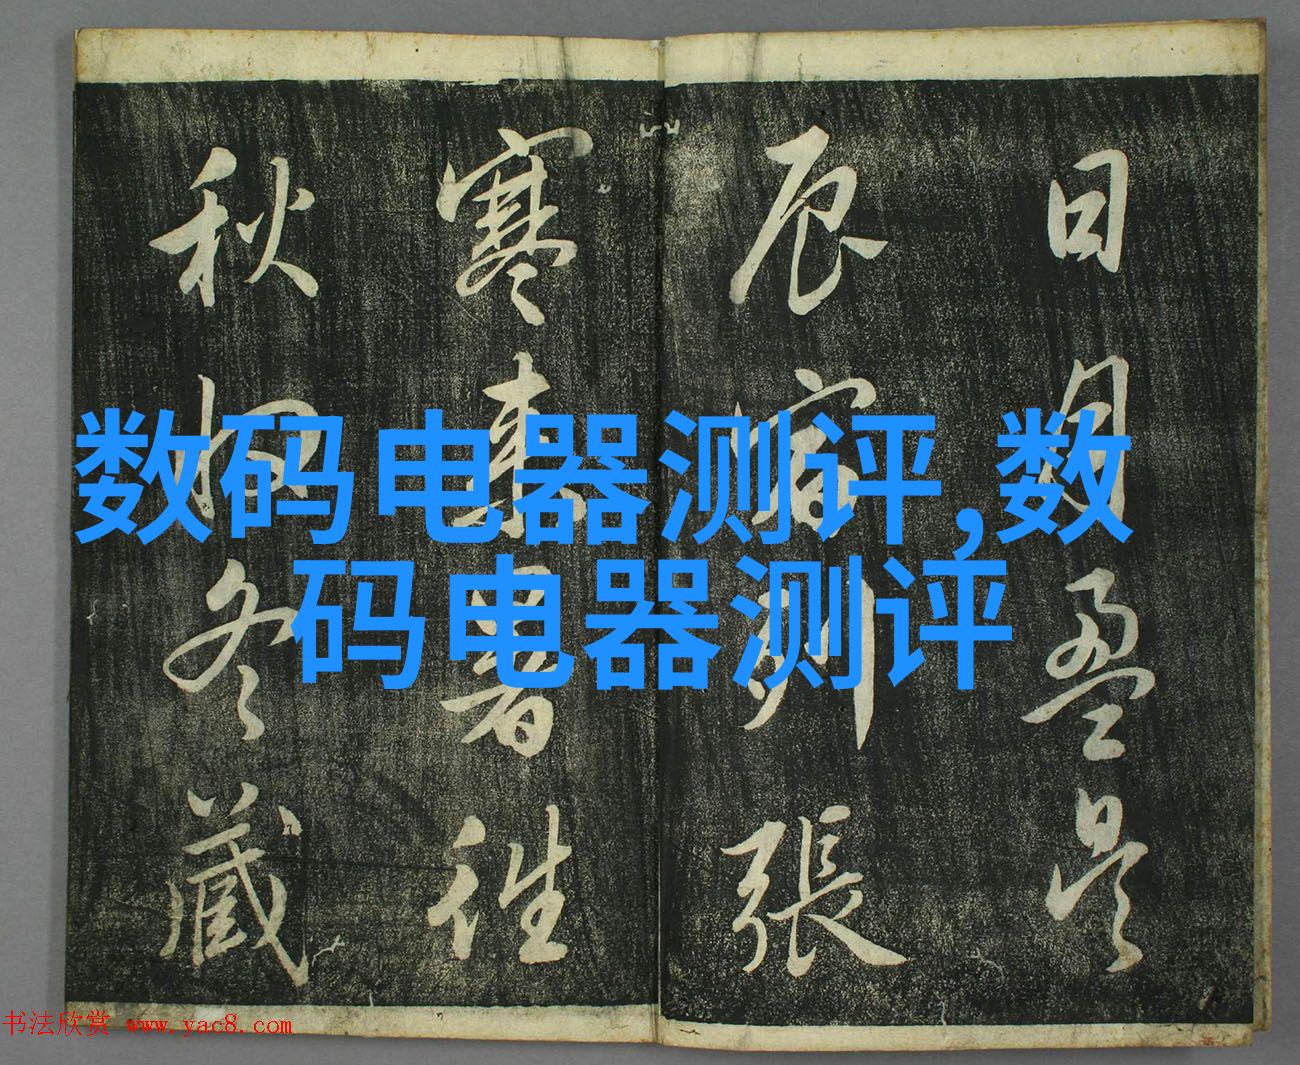 日月盈昃
辰宿列張
寒來暑往
秋收冬藏
数码电器测评,数
码电器测评
书法欣赏 www.yac8.com